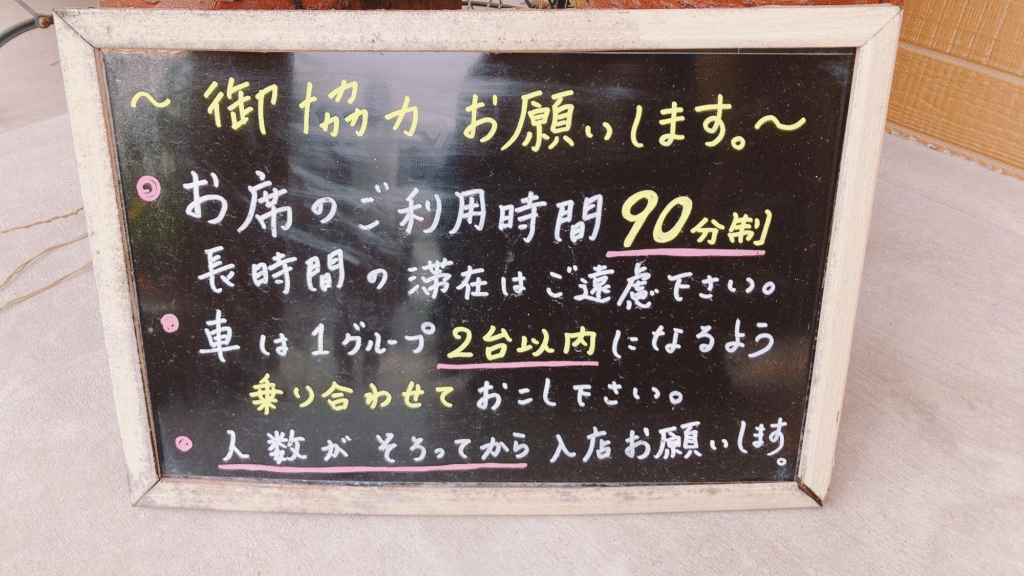 ～御協力お願いします。～
お席のご利用時間90分制
長時間の滞在はご遠慮下さい。
車は1グループ2台以内になるよう
乗り合わせておこし下さい。
人数がそろってから入店お願いします。